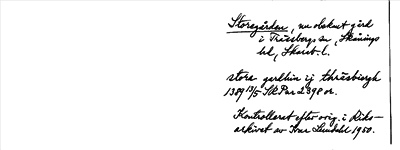 Storegården, nu okänt gård
i Trässbergs sn, Skånings
hd, Skarab. l.
stora gardhin ij thræsbiærgh
1389 13/5 SRAPur 2398 or.
Kontrollerat efter orig. i Riks-
arkivet av Ivar Lundahl 1950.